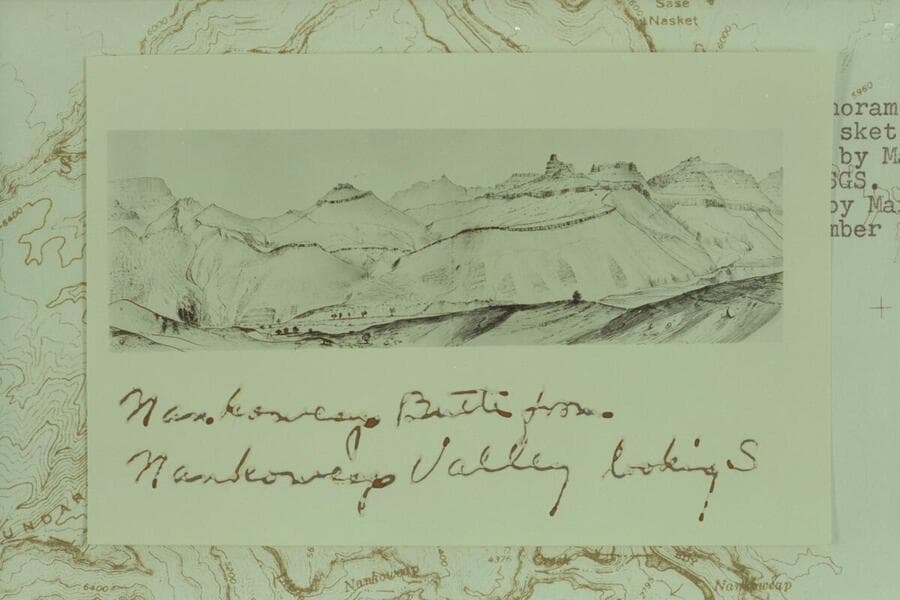 Sase
Nasket
6000
6000
5960
noram
sket
by Ma
SGS.
by Ma
mber
6400
Nankoweap Butte from
Nankoweap Valley looking S
UNDAR
6400
5200
Nankoweap
4376
Nankoweap